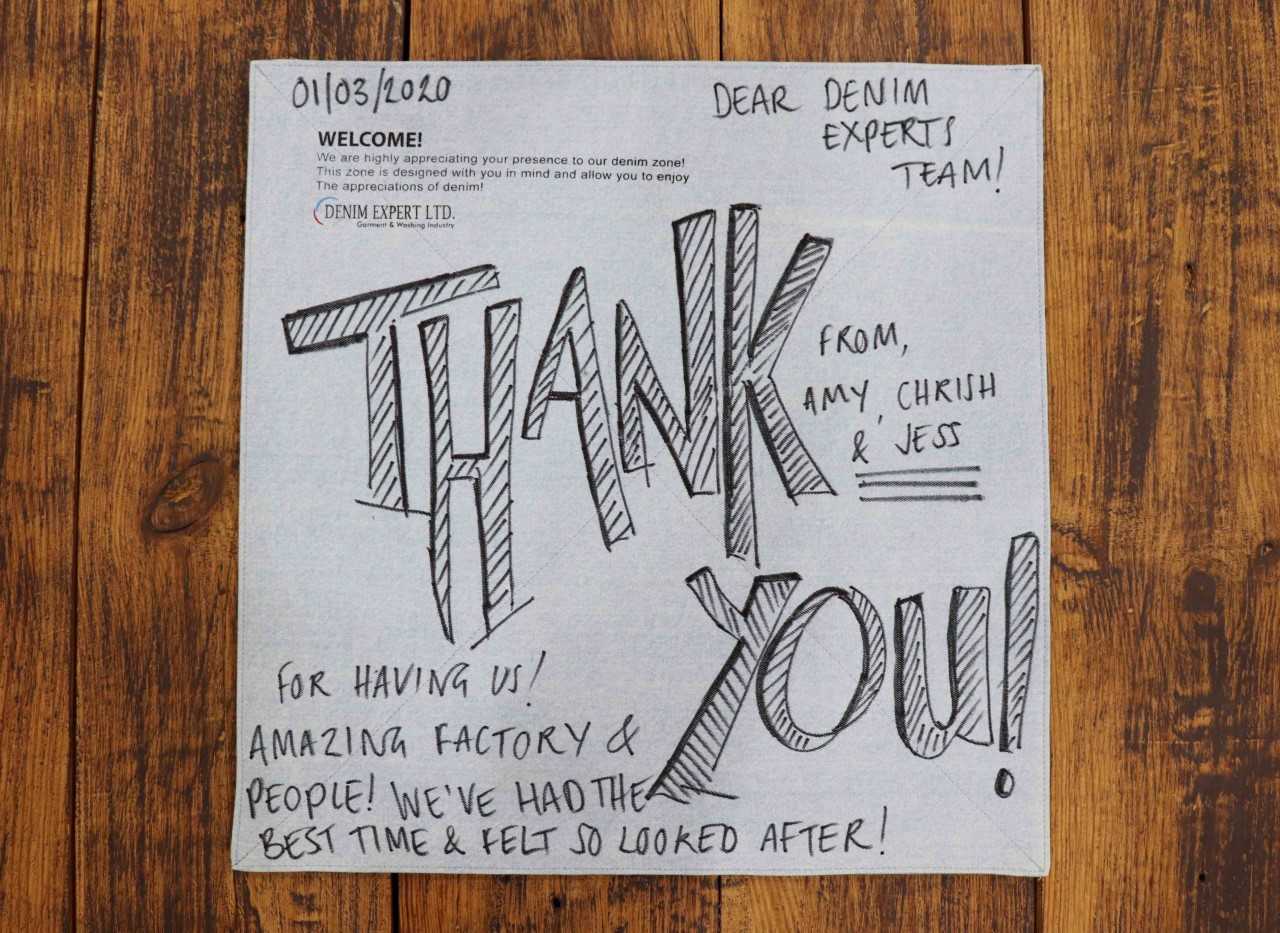 01/03/2020
DEAR DENIM
EXPERTS
TEAM!
WELCOME!
We are highly appreciating your presence to our denim zone!
This zone is designed with you in mind and allow you to enjoy
The appreciations of denim!
DENIM EXPERT LTD.
Garment & Washing Industry
THANK
YOU!
FROM,
AMY, CHRISH
& JESS
FOR HAVING US!
AMAZING FACTORY &
PEOPLE! WE'VE HAD THE
BEST TIME & FELT SO LOOKED AFTER!